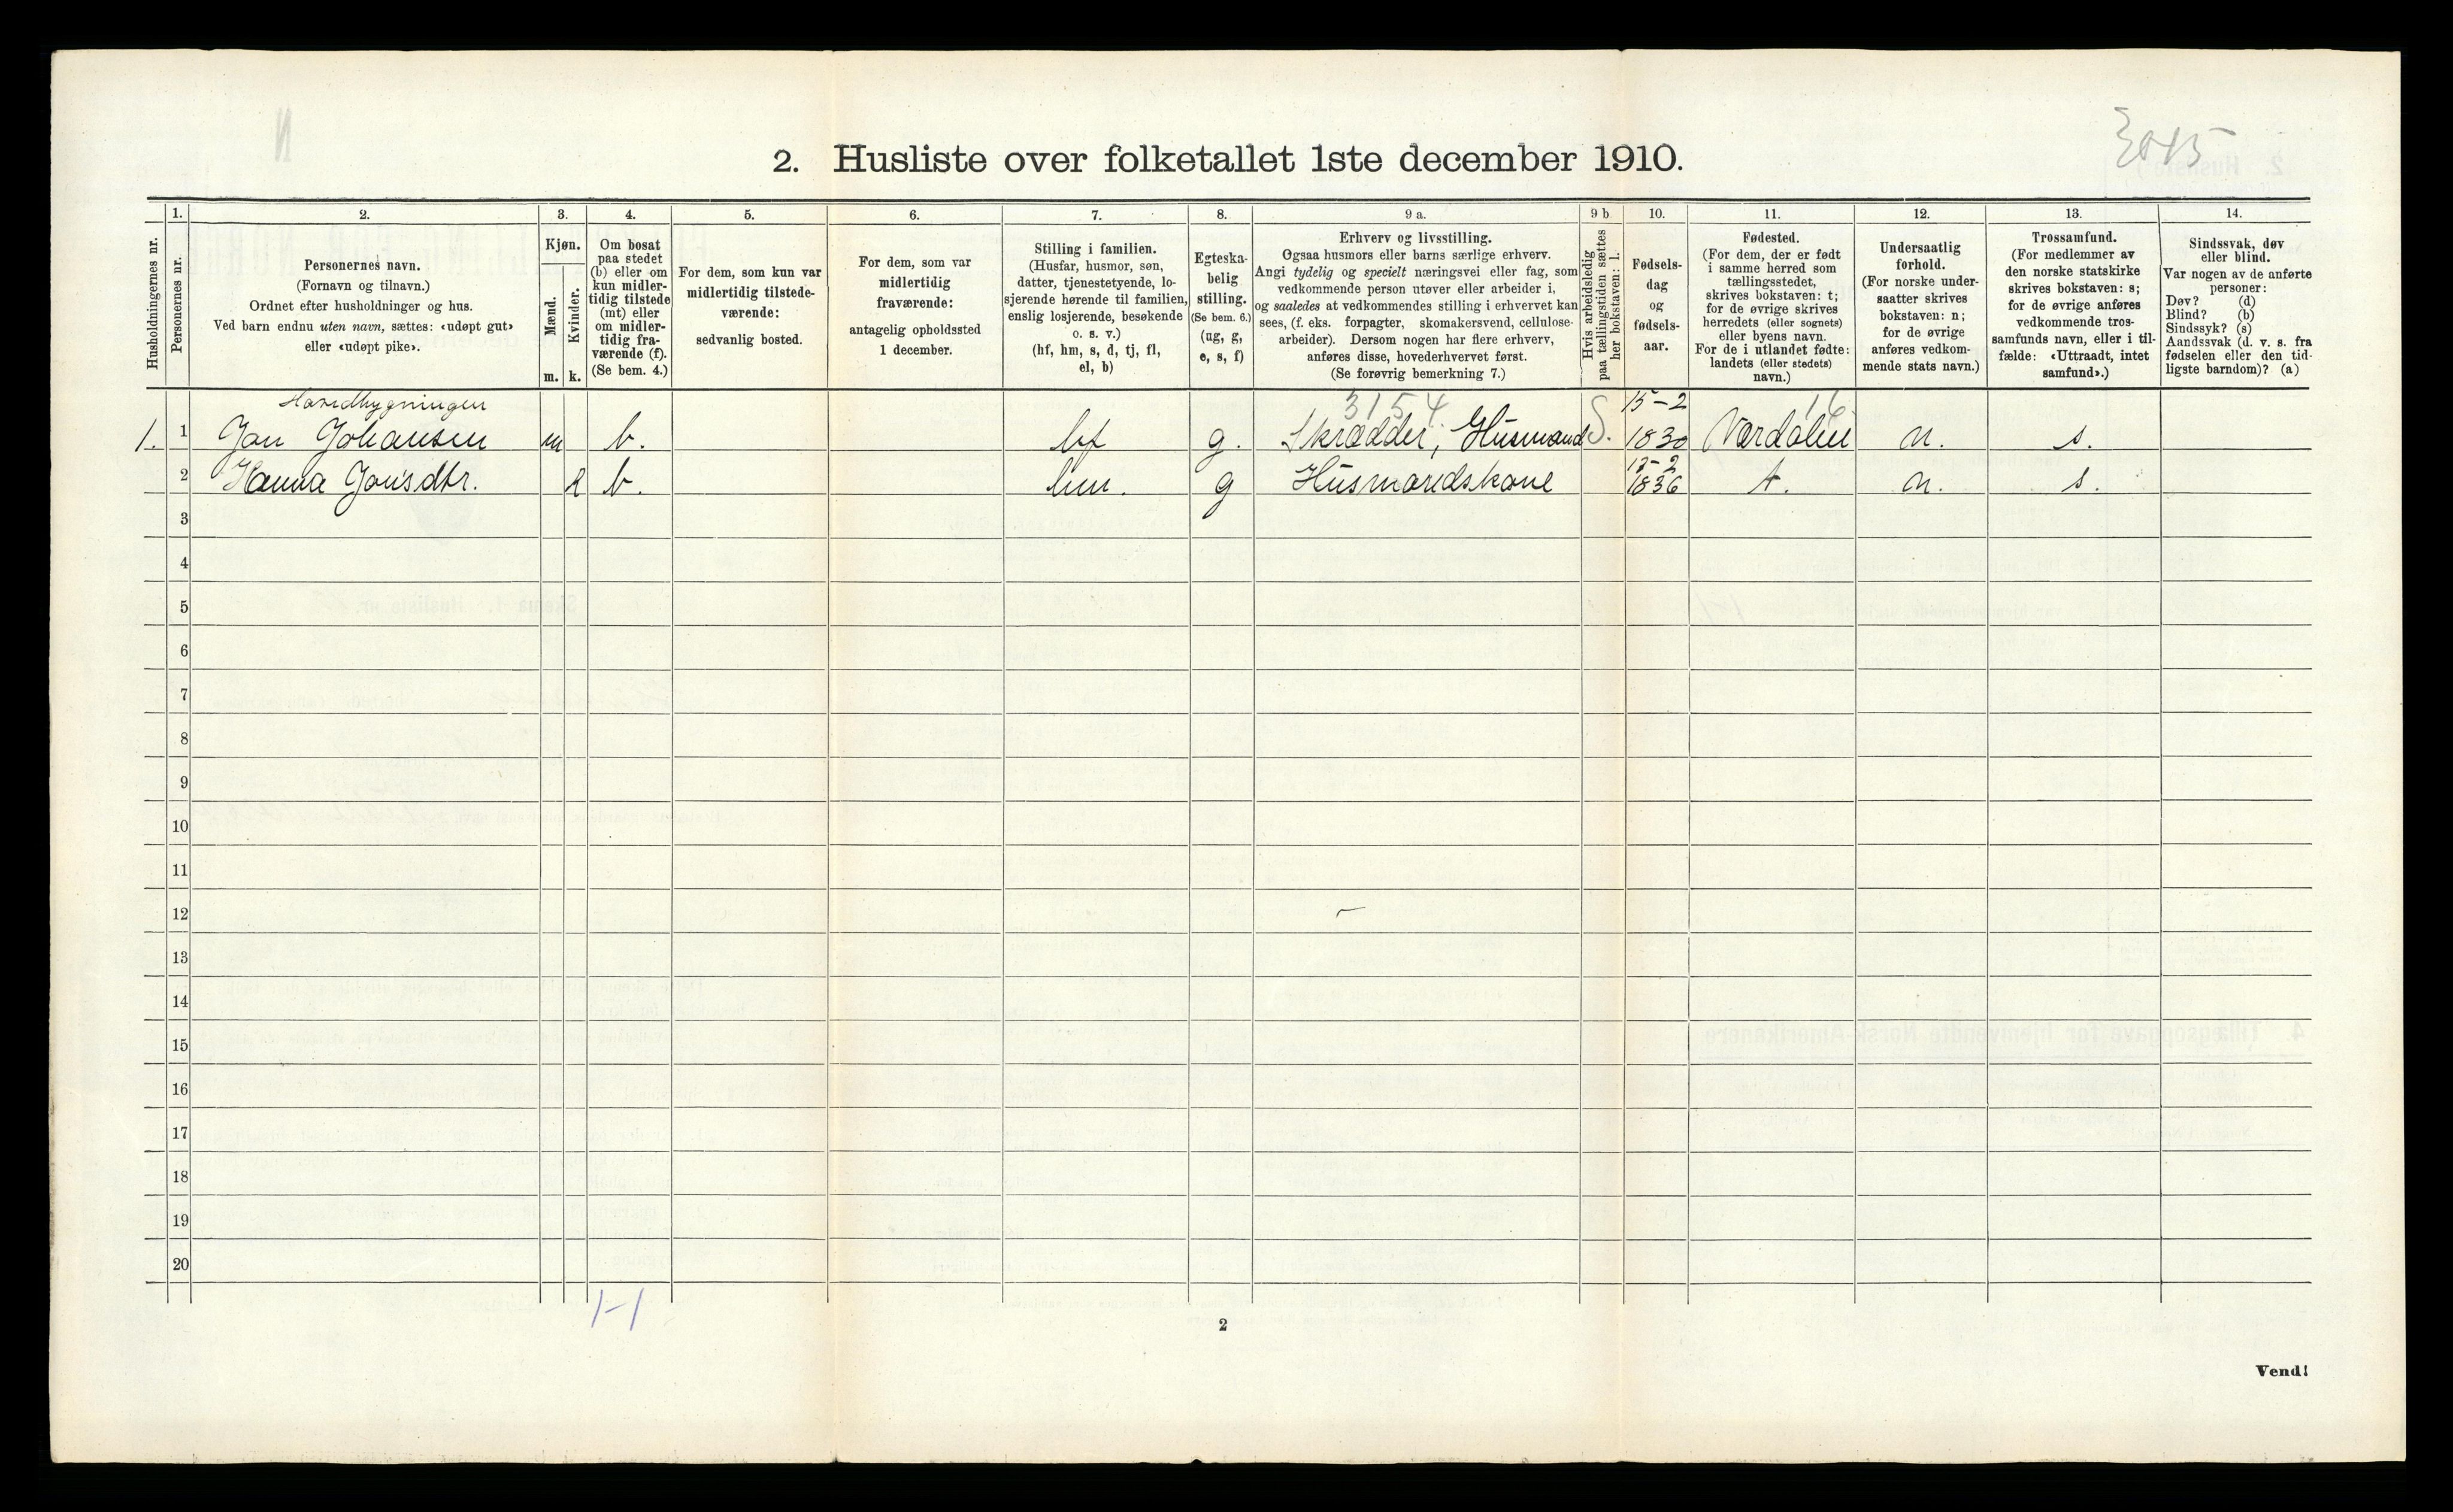 2. Husliste over folketallet 1ste december 1910.
Husholdningernes nr.
1.
Personernes nr.
2.
Personernes navn.
(Fornavn og tilnavn.)
Ordnet efter husholdninger og hus.
Ved barn endnu uten navn, sættes: «udøpt gut»
eller «udøpt pike».
3.
Kjøn.
Mænd.
Kvinder.
m. k.
4.
Om bosat
paa stedet
(b) eller om
kun midler-
tidig tilstede
(mt) eller
om midler-
tidig fra-
værende (f).
(Se bem. 4.)
5.
For dem, som kun var
midlertidig tilstede-
værende:
sedvanlig bosted.
6.
For dem, som var
midlertidig
fraværende:
antagelig opholdssted
1 december.
7.
Stilling i familien.
(Husfar, husmor, søn,
datter, tjenestetyende, lo-
sjerende hørende til familien,
enslig losjerende, besøkende
o. s. v.)
(hf, hm, s, d, tj, fl,
el, b)
8.
Egteska-
belig
stilling.
(Se bem. 6.)
(ug, g,
e, s, f)
9 a.
Erhverv og livsstilling.
Ogsaa husmors eller barns særlige erhverv.
Angi tydelig og specielt næringsvei eller fag, som
vedkommende person utøver eller arbeider i,
og saaledes at vedkommendes stilling i erhvervet kan
sees, (f. eks. forpagter, skomakersvend, cellulose-
arbeider). Dersom nogen har flere erhverv,
anføres disse, hovederhvervet først.
(Se forøvrig bemerkning 7.)
9 b
Hvis arbeidsledig
paa tællingstiden sættes
her bokstaven: l.
10.
Fødsels-
dag
og
fødsels-
aar.
11.
Fødested.
(For dem, der er født
i samme herred som
tællingsstedet,
skrives bokstaven: t;
for de øvrige skrives
herredets (eller sognets)
eller byens navn.
For de i utlandet fødte:
landets (eller stedets)
navn.)
12.
Undersaatlig
forhold.
(For norske under-
saatter skrives
bokstaven: n;
for de øvrige
anføres vedkom-
mende stats navn.)
13.
Trossamfund.
(For medlemmer av
den norske statskirke
skrives bokstaven: s;
for de øvrige anføres
vedkommende tros-
samfunds navn, eller i til-
fælde: «Uttraadt, intet
samfund».)
14.
Sindssvak, døv
eller blind.
Var nogen av de anførte
personer:
Døv? (d)
Blind? (b)
Sindssyk? (s)
Aandssvak (d. v. s. fra
fødselen eller den tid-
ligste barndom)? (a)
Hovedbygningen 3154 15-2
1. 1 Jon Johansen m b. hf g. Skrædder, Husmand S. 1830 Værdalen n. s.
2 Hanna Jonsdtr. k b. hm. g Husmandskone 1836 t. n. s.
3
4
5
6
7
8
9
10
11
12
13
14
15
16
17
18
19
20
1-1
2
Vend!